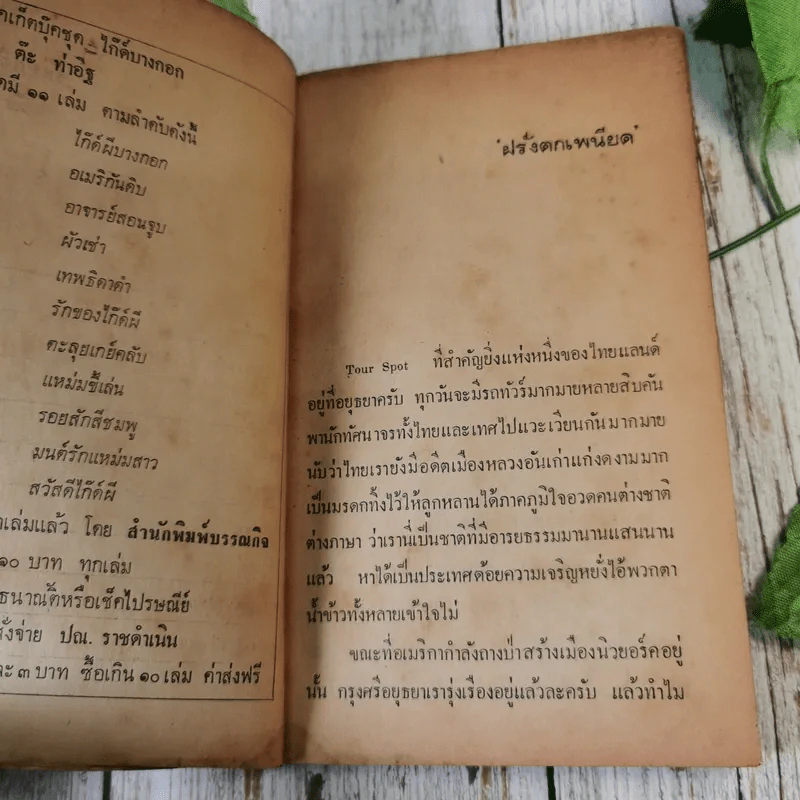 กเก็ตบุ๊คชุด ไก๊ด์บางกอก
ต๊ะ ท่าอิฐ
มี ๑๑ เล่ม ตามลำดับดังนี้
ไก๊ด์ผีบางกอก
อเมริกันดิบ
อาจารย์สอนจูบ
ผัวเช่า
เทพธิดาดำ
รักของไก๊ด์ผี
ตะลุยเกย์คลับ
แหม่มขี้เล่น
รอยสักสีชมพู
มนต์รักแหม่มสาว
สวัสดีไก๊ด์ผี
เล่มแล้ว โดย สำนักพิมพ์บรรณกิจ
๑๐ บาท ทุกเล่ม
ธนาณัติหรือเช็คไปรษณีย์
สั่งจ่าย ปณ. ราชดำเนิน
ละ ๓ บาท ซื้อเกิน ๑๐ เล่ม ค่าส่งฟรี
'ฝรั่งตกเพนียด'
Tour Spot ที่สำคัญยิ่งแห่งหนึ่งของไทยแลนด์
อยู่ที่อยุธยาครับ ทุกวันจะมีรถทัวร์มากมายหลายสิบคัน
พานักทัศนาจรทั้งไทยและเทศไปแวะเวียนกันมากมาย
นับว่าไทยเรายังมีอดีตเมืองหลวงอันเก่าแก่งดงามมาก
เป็นมรดกทิ้งไว้ให้ลูกหลานได้ภาคภูมิใจอวดคนต่างชาติ
ต่างภาษา ว่าเรานี่เป็นชาติที่มีอารยธรรมมานานแสนนาน
แล้ว หาได้เป็นประเทศด้อยความเจริญหยั่งไอ้พวกตา
น้ำข้าวทั้งหลายเข้าใจไม่
ขณะที่อเมริกากำลังถางป่าสร้างเมืองนิวยอร์คอยู่
นั้น กรุงศรีอยุธยาเรารุ่งเรืองอยู่แล้วละครับ แล้วทำไม